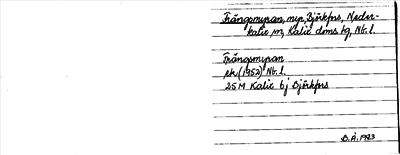 Trångsmyran, myr, Björkfors, Neder-
kalix sn, Kalix doms tg, Nb. l.
Trångsmyran
ek. (1952) Nb. l.
25M Kalix bj Björkfors
B.Å. 1983